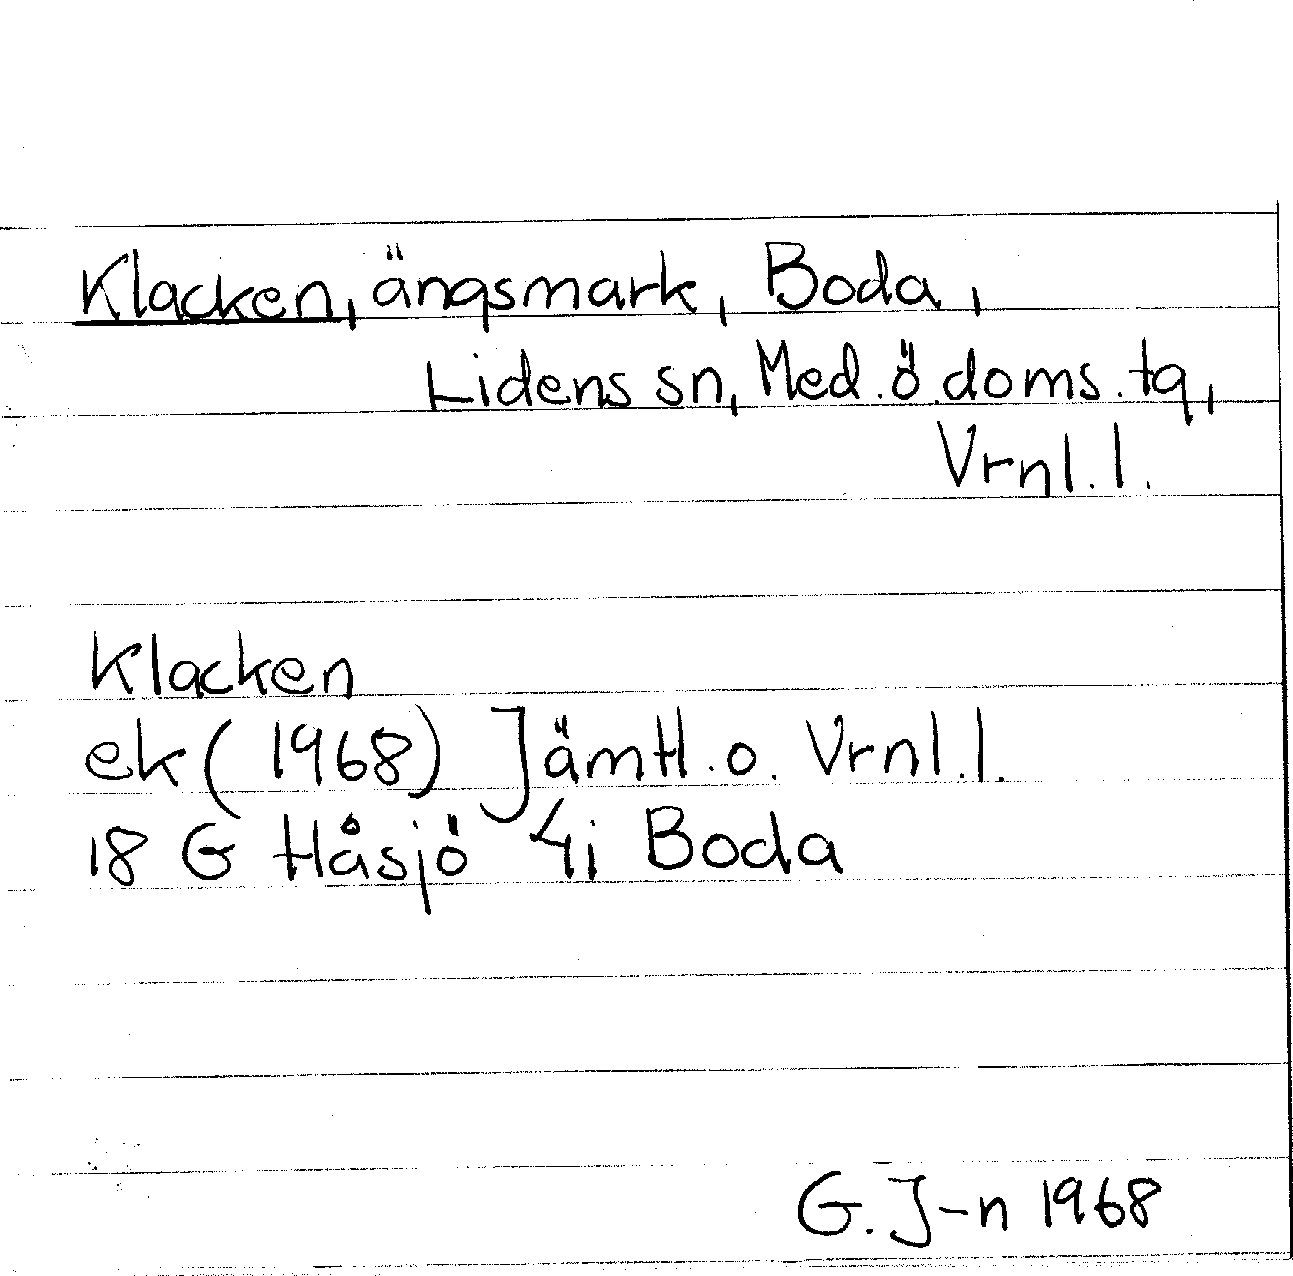 Klacken, ängsmark, Boda,
Lidens sn, Med.ö.doms.tg,
Vrnl.l.
Klacken
ek (1968) Jämtl.o. Vrnl.l.
18 G Håsjö 4i Boda
G. J-n 1968